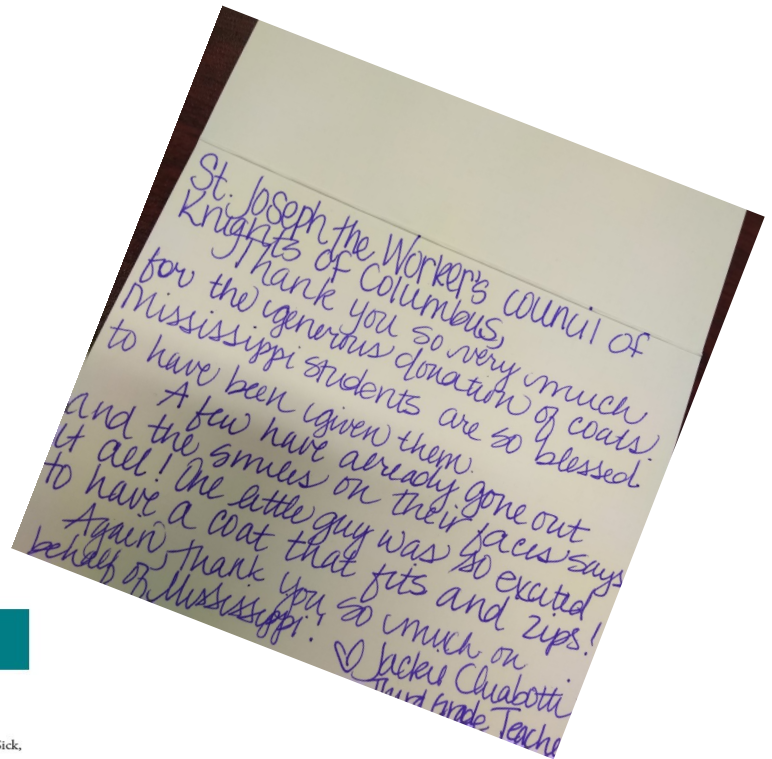 St. Joseph the Worker's council of
Knights of Columbus,
Thank you so very much
for the generous donation of coats.
Mississippi students are so blessed
to have been given them.
A few have already gone out
and the smiles on their faces says
it all! One little guy was so excited
to have a coat that fits and zips!
Again, thank you so much on
behalf of Mississippi!
♡ Jackie Chiabotti
Third Grade Teache
Sick,